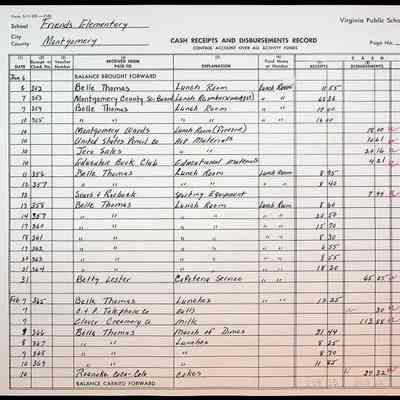 School Friends Elementary
Virginia Public Scho
City
County Montgomery
CASH RECEIPTS AND DISBURSEMENTS RECORD
CONTROL ACCOUNT OVER ALL ACTIVITY FUNDS
Page No.
(1) (2) (3) (4) (5) (6) (7) (8)
CASH
DATE Receipt or Check No. Voucher Number RECEIVED FROM PAID TO EXPLANATION Fund Name or Number RECEIPTS DISBURSEMENTS
Jan 6 BALANCE BROUGHT FORWARD
6 352 Belle Thomas Lunch Room Lunch Room 11 55
7 353 Montgomery County Sc. Board Lunch Reimbursement " "
7 354 Belle Thomas Lunch Room " "
10 355 " " " " " " 16 00
10 Montgomery Wards Lunch Room
10 United States Pencil Co Art Materials
10 Jero Sales " " 20 16
10 Educator Book Club Educational Materials 4 21
11 356 Belle Thomas Lunch Room Lunch Room 8 95
12 357 " " " " " " 8 40
12 Sears & Roebuck Sporting Equipment 7 99
13 358 Belle Thomas Lunch Room Lunch Room
14 359 " " " " " " 20 50
17 360 " " " " " " 15 70
18 361 " " " " " " 8 30
19 362 " " " " " " 6 55
20 363 " " " " " " 8 55
21 364 " " " " " " 18 20
31 Betty Lester Cafeteria Service " " 65 05
Feb 7 365 Belle Thomas Lunches " " 13 25
7 C. & P. Telephone Co Calls 30
7 Clover Creamery Co Milk 113
8 366 Belle Thomas March of Dimes 21 44
8 367 " " Lunches 8 25
9 368 " " " " 8 70
10 369 " " " " 11 85
10 Roanoke Coca-Cola Cokes 29 32
BALANCE CARRIED FORWARD